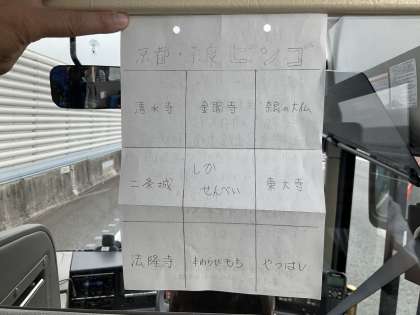 京都・奈良ビンゴ
清水寺
金閣寺
奈良の大仏
二条城
しか
せんべい
東大寺
法隆寺
わらびもち
やつはし